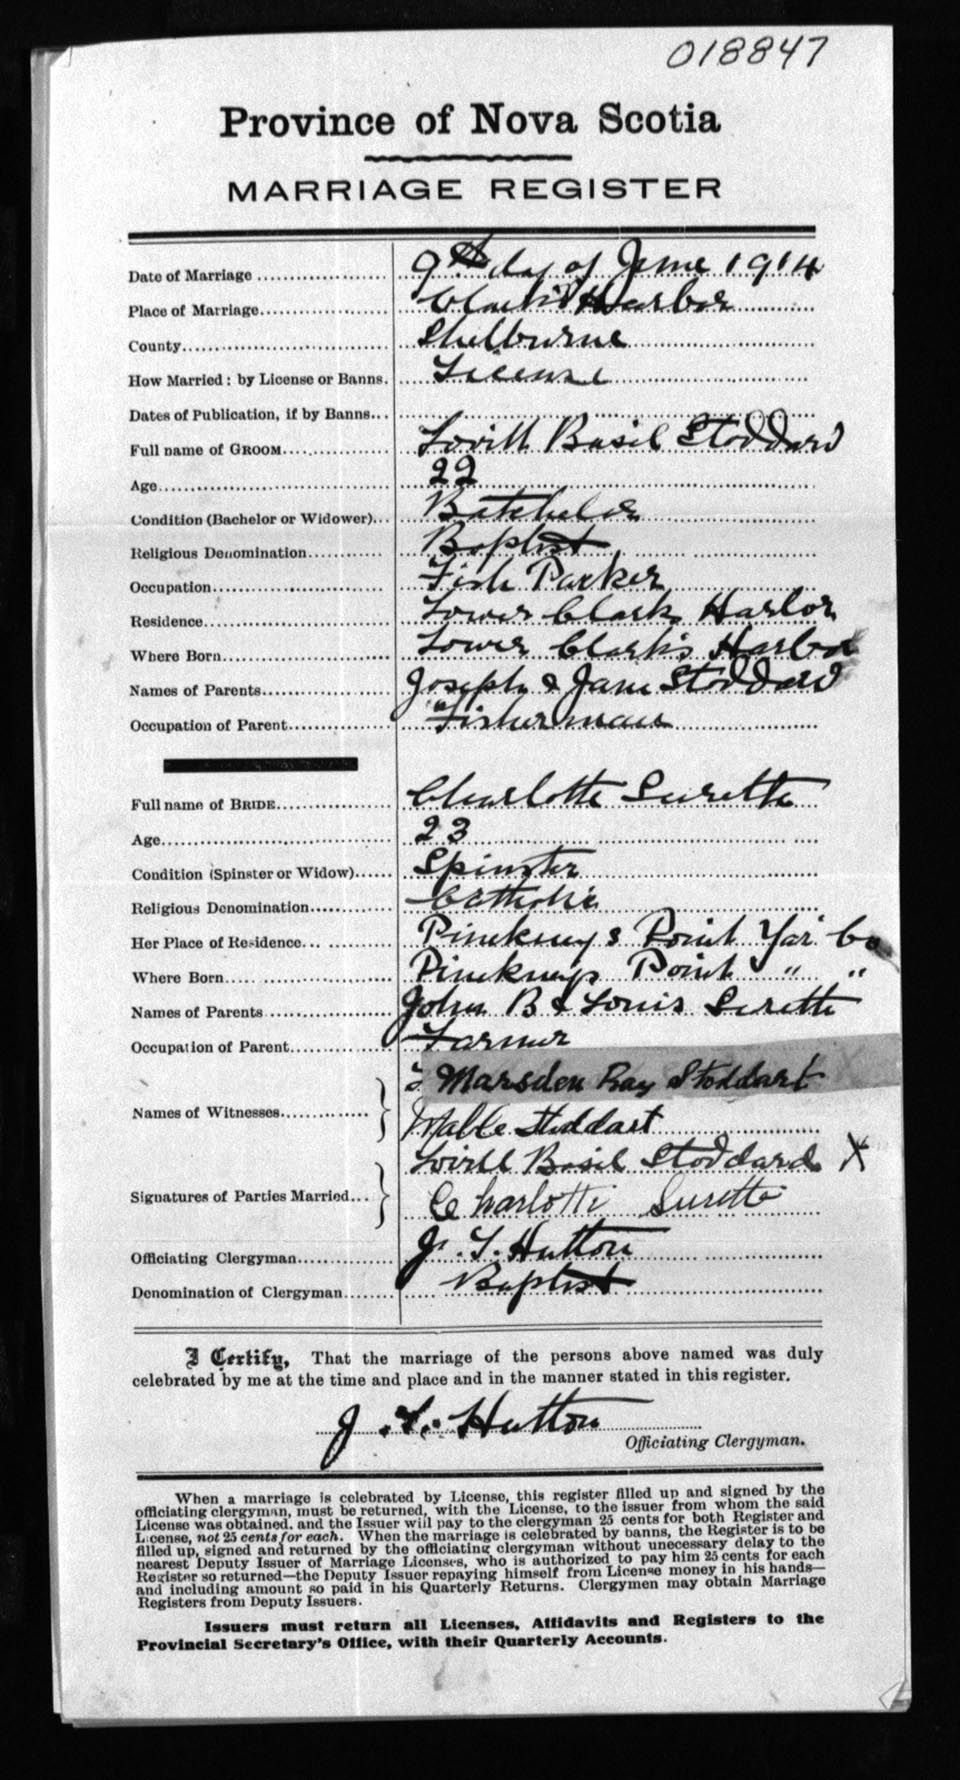 018847
Province of Nova Scotia
MARRIAGE REGISTER
Date of Marriage 9th day of June 1914
Place of Marriage Clark's Harbor
County Shelburne
How Married: by License or Banns. License
Dates of Publication, if by Banns
Full name of GROOM Lovitt Basil Stoddard
Age 22
Condition (Bachelor or Widower) Batchelor
Religious Denomination Baptist
Occupation Fish Packer
Residence Lower Clarks Harbor
Where Born Lower Clark's Harbor
Names of Parents Joseph & Jane Stoddard
Occupation of Parent Fisherman
Full name of BRIDE Charlotte Surette
Age 23
Condition (Spinster or Widow) Spinster
Religious Denomination Catholic
Her Place of Residence Pinckneys Point Yar Co
Where Born Pinckneys Point " "
Names of Parents John B & Louis Surette
Occupation of Parent Farmer
Names of Witnesses Marsden Ray Stoddart
Mable Stoddart
Signatures of Parties Married Lovitt Basil Stoddard X
Charlotte Surette
Officiating Clergyman J. T. Hutton
Denomination of Clergyman Baptist
I Certify, That the marriage of the persons above named was duly
celebrated by me at the time and place and in the manner stated in this register.
J. T. Hutton
Officiating Clergyman.
When a marriage is celebrated by License, this register filled up and signed by the
officiating clergyman, must be returned, with the License, to the issuer from whom the said
License was obtained, and the Issuer will pay to the clergyman 25 cents for both Register and
License, not 25 cents for each. When the marriage is celebrated by banns, the Register is to be
filled up, signed and returned by the officiating clergyman without unnecessary delay to the
nearest Deputy Issuer of Marriage Licenses, who is authorized to pay him 25 cents for each
Register so returned—the Deputy Issuer repaying himself from License money in his hands—
and including amount so paid in his Quarterly Returns. Clergymen may obtain Marriage
Registers from Deputy Issuers.
Issuers must return all Licenses, Affidavits and Registers to the
Provincial Secretary's Office, with their Quarterly Accounts.